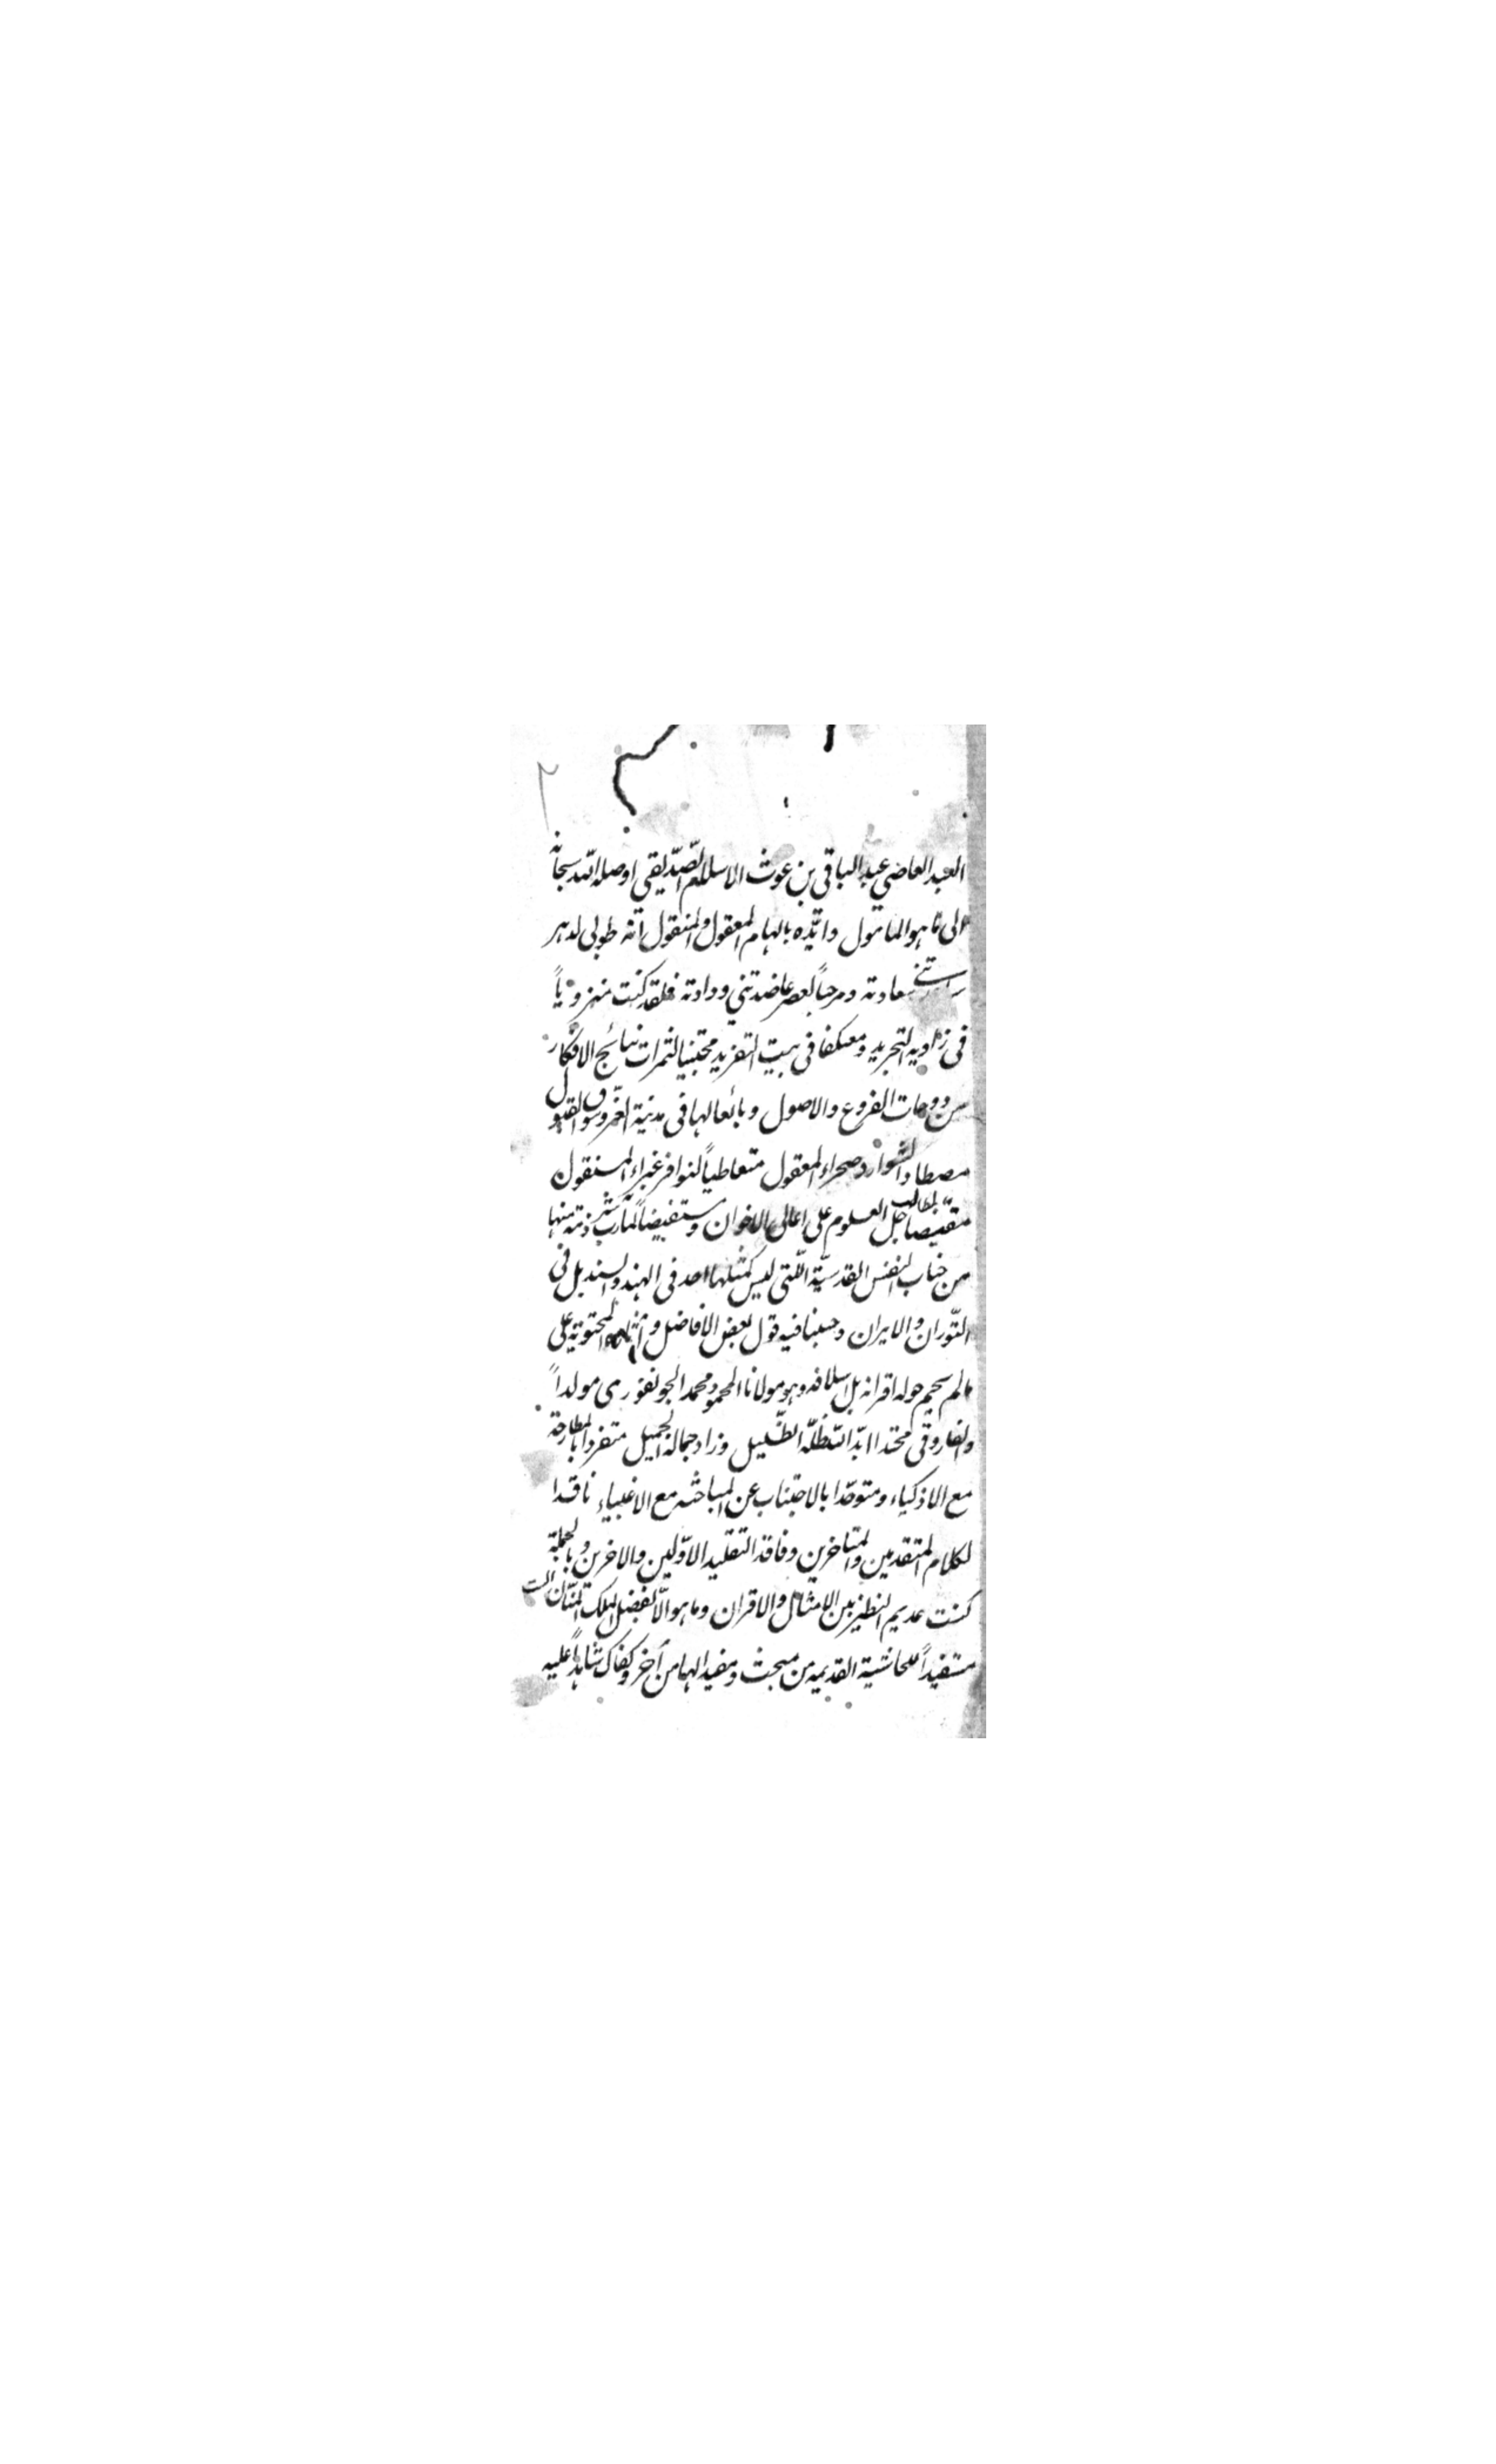 ٢
العبد العاصي عبد الباقي بن غوث الاسلام الصّدّيقي اوصله اللّه سبحانه
الى ما هو المامول وايّده بالهام المعقول والمنقول انه طوبى لدهر
سعادته ومرحباً لعصر عاضدتني ودادته فلقد كنت منزوياً
في زاوية التجريد ومعتكفا في بيت التفريد مجتنيا لثمرات نتائج الافكار
من دوحات الفروع والاصول وبائعا لها في مدينة العزّ وسوق القبول
مصطادا لشوارد صحراء المعقول متعاطياً لنوافر غبراء المنقول
مطالب جلّ العلوم على اعالى الاخوان ومستفيضاً لمآرب شرذمته منها
من جناب النفس القدسيّة اللتى ليس كمثلها احد فى الهند والسند بل فى
التّوران والايران وحسبنا فيه قول بعض الافاضل المحتوية على
مالم يحم حوله اقرانه بل اسلافه وهو مولانا المحمود محمد الجونفورى مولداً
والفاروقى محتدا ابدّ اللّه ظلّه الظّليل وزاد جماله الجميل متفردا بالمطارحة
مع الاذكياء ومتوحّدا بالاجتناب عن المباحثه مع الاغبياء ناقدا
لكلام المتقدمين والمتاخرين وفاقد التقليد الاوّلين والاخرين وبالجملة
كنت عديم النظير بين الامثال والاقران وما هو الّا بفضل الملك المنّان
مستفيداً للحاشية القديمه من مبحث ومفيدا لها من آخر وكفاك شاهداً عليه